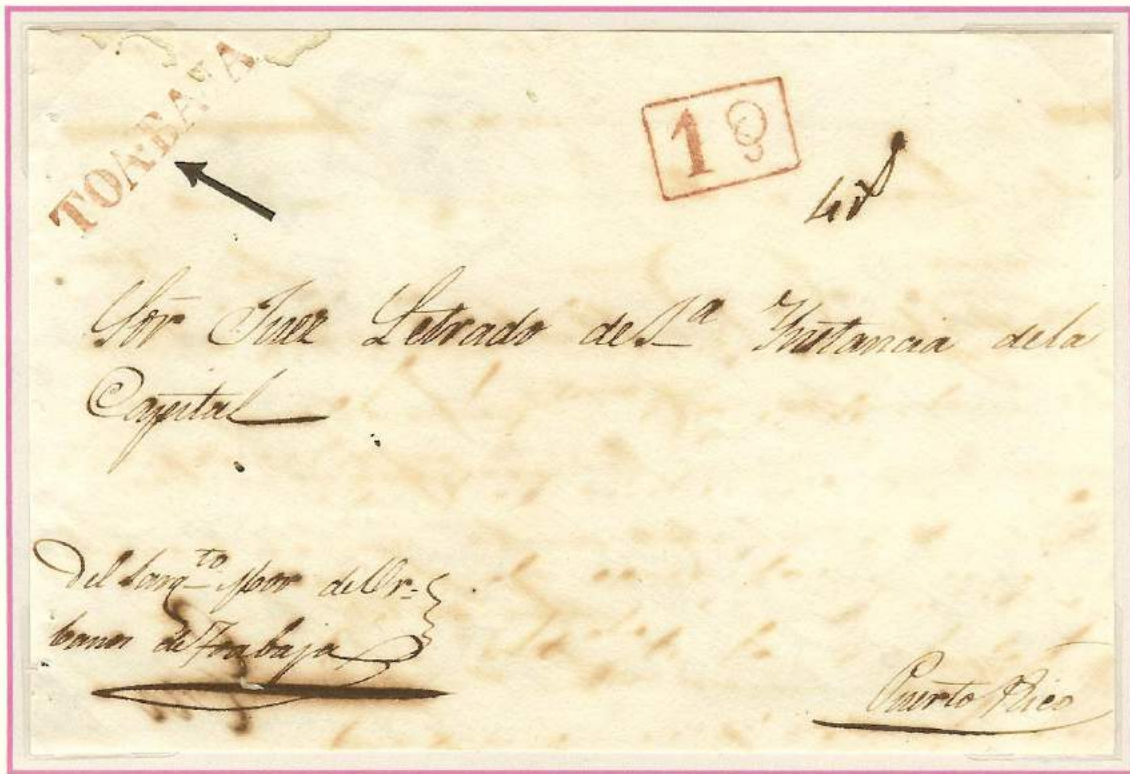 TOABAXA
1
Sor Juez Letrado de 1ª Instancia de la
Capital
Del Sargto mor de Ur-
banos de Toabaja
Puerto Rico